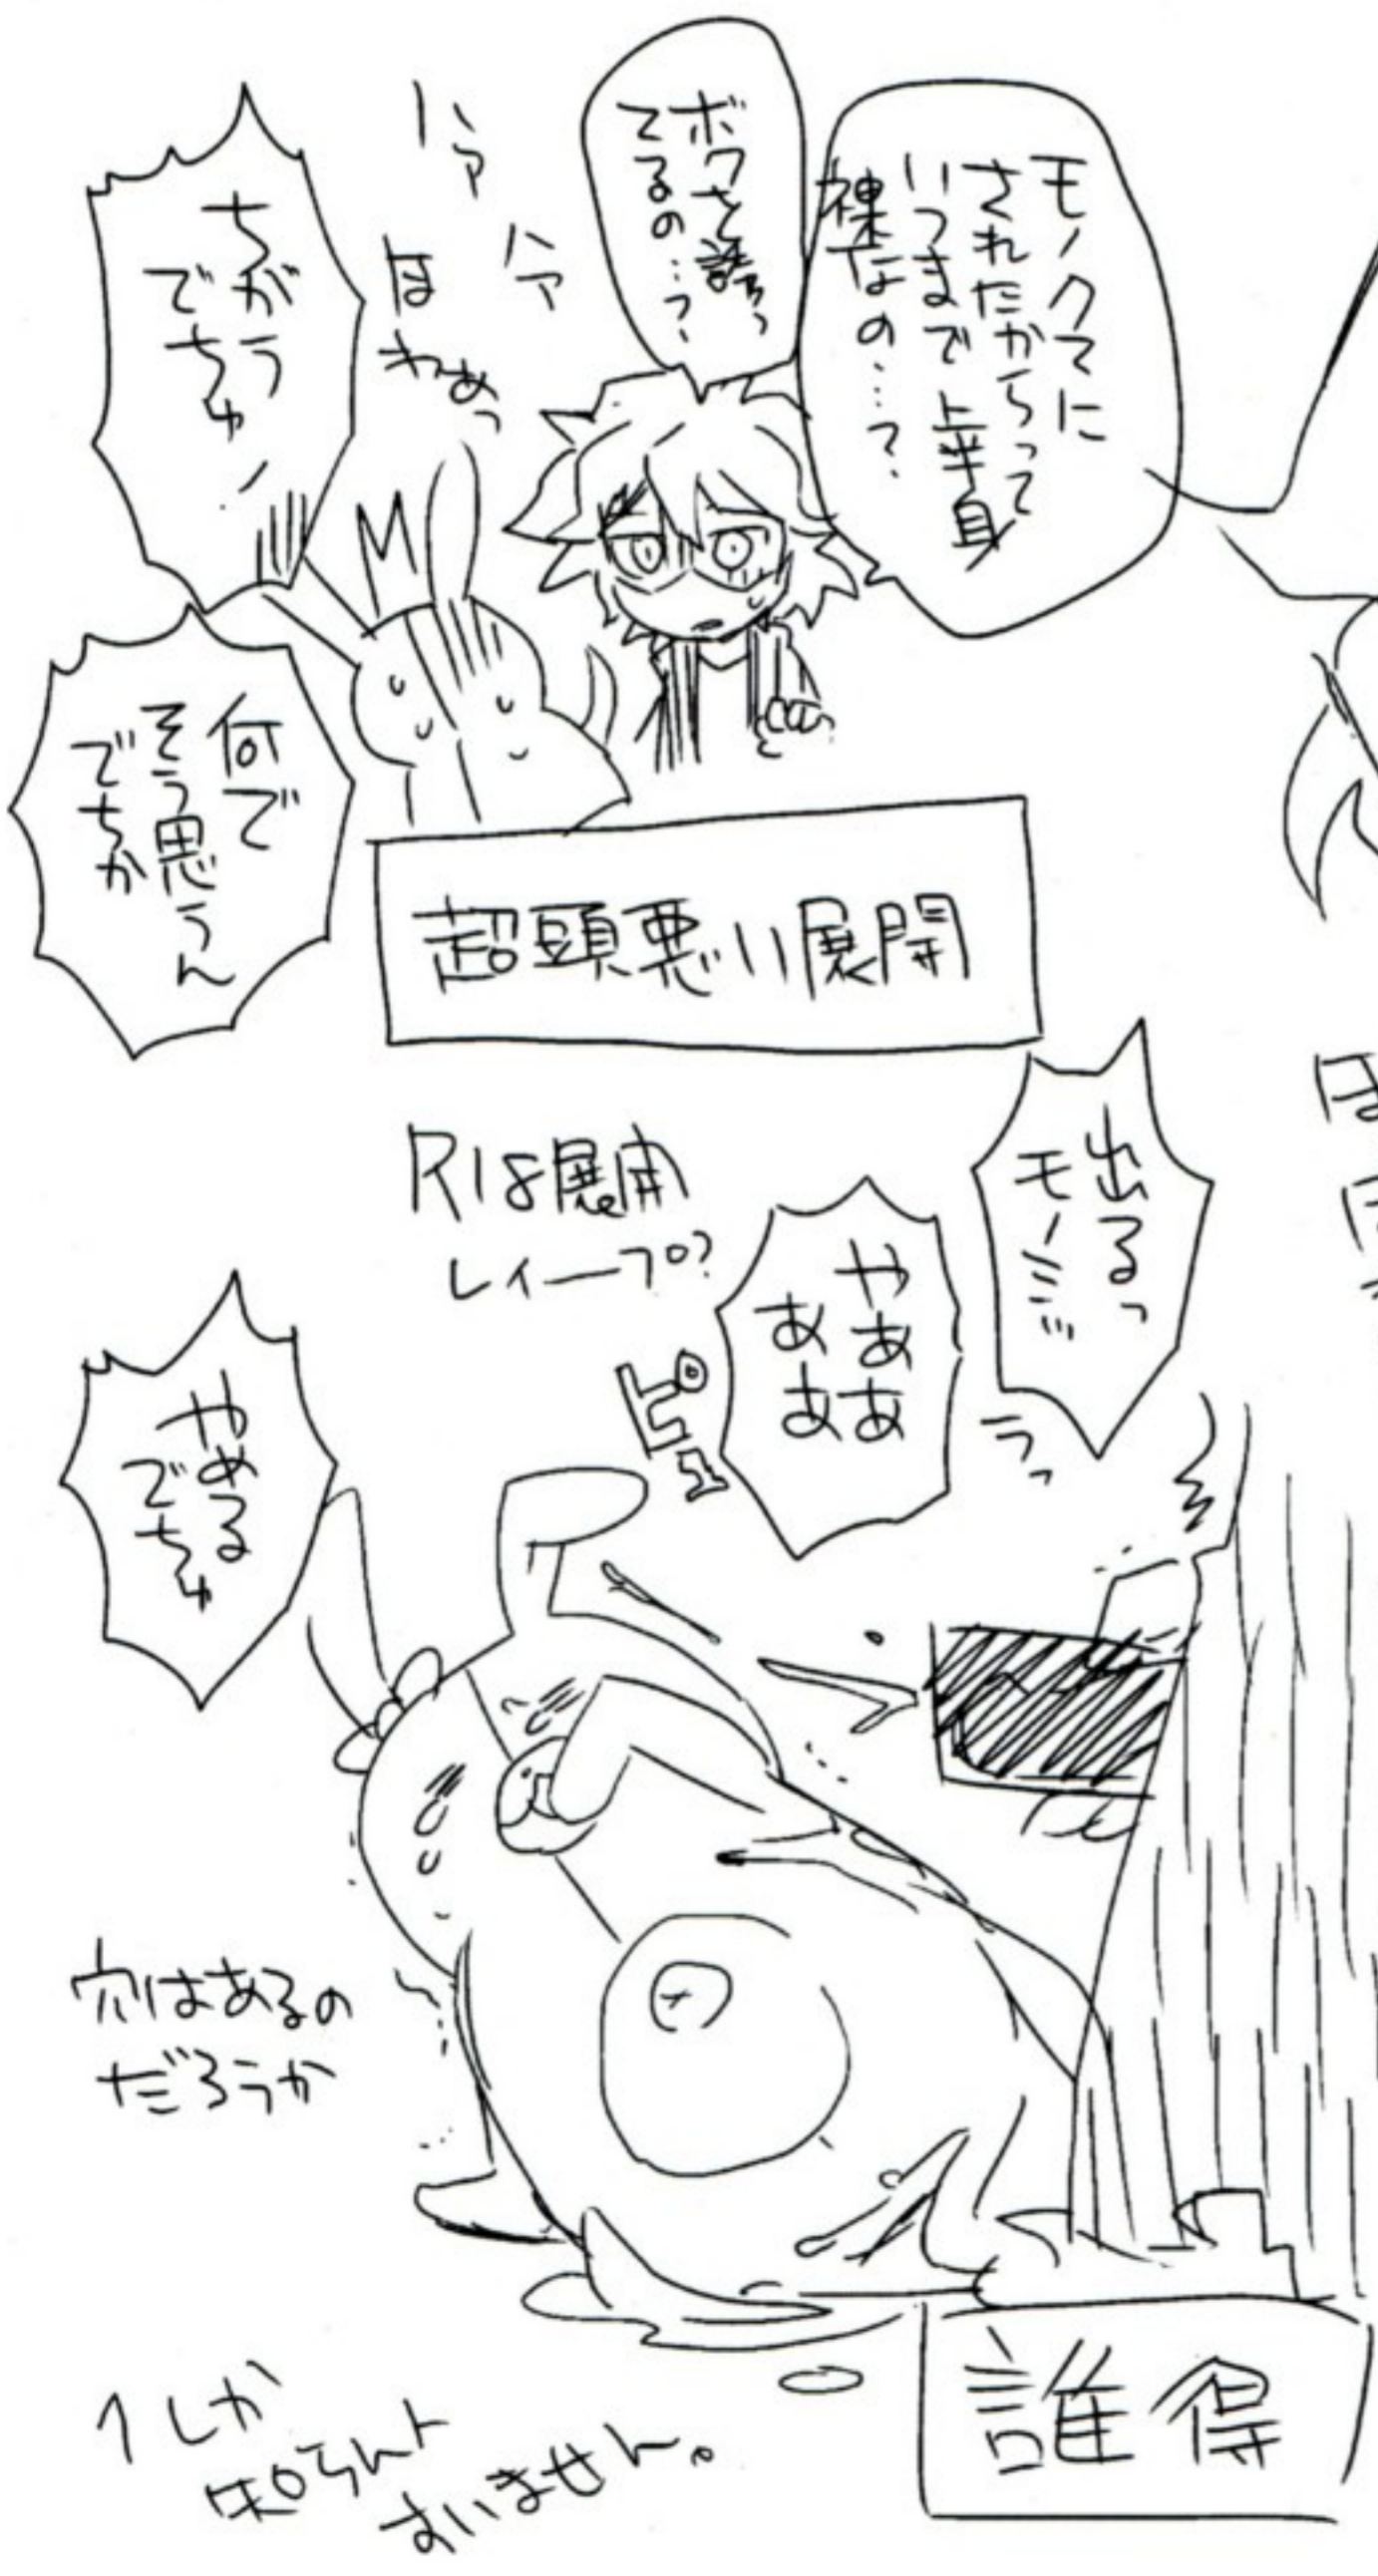 モノクマに
されたからって
いつまで上半身
裸なの…?
ボクを誘っ
てるの…?
ハァ
ハァ
ほわぁっ
ちがう
でちゅ
何で
そう思うん
でちか
超頭悪い展開
R18展開
レイープ?
出るっ
モノミ…
ラっ
やああ
ああ
ピュ
やめる
でちゅ
穴はあるの
だろうか
誰得
1しか
知らんト
すいません。